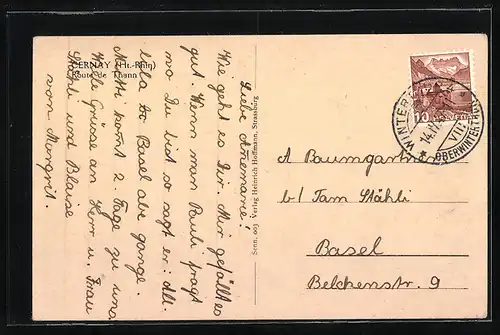 CERNAY (Ht.-Rhin)
Route de Thann
Liebe Annemarie!
Wie geht es Dir. Mir gefällt es
gut. Wenn man Pauli fragt
wo Du bist, so sagt er: Alli-
lala to Basel abe gange.
Mutti kommt 2. Tage zu uns
Viele Grüsse an Herr u. Frau
Stähli und Blaise
von Margrit.
Senn. 603 Verlag Heinrich Hoffmann, Strassburg
HELVETIA
10
WINTER
14.II.
VIII
OBERWINTERTHUR
A Baumgartner
b/ Fam Stähli
Basel
Belchenstr. 9